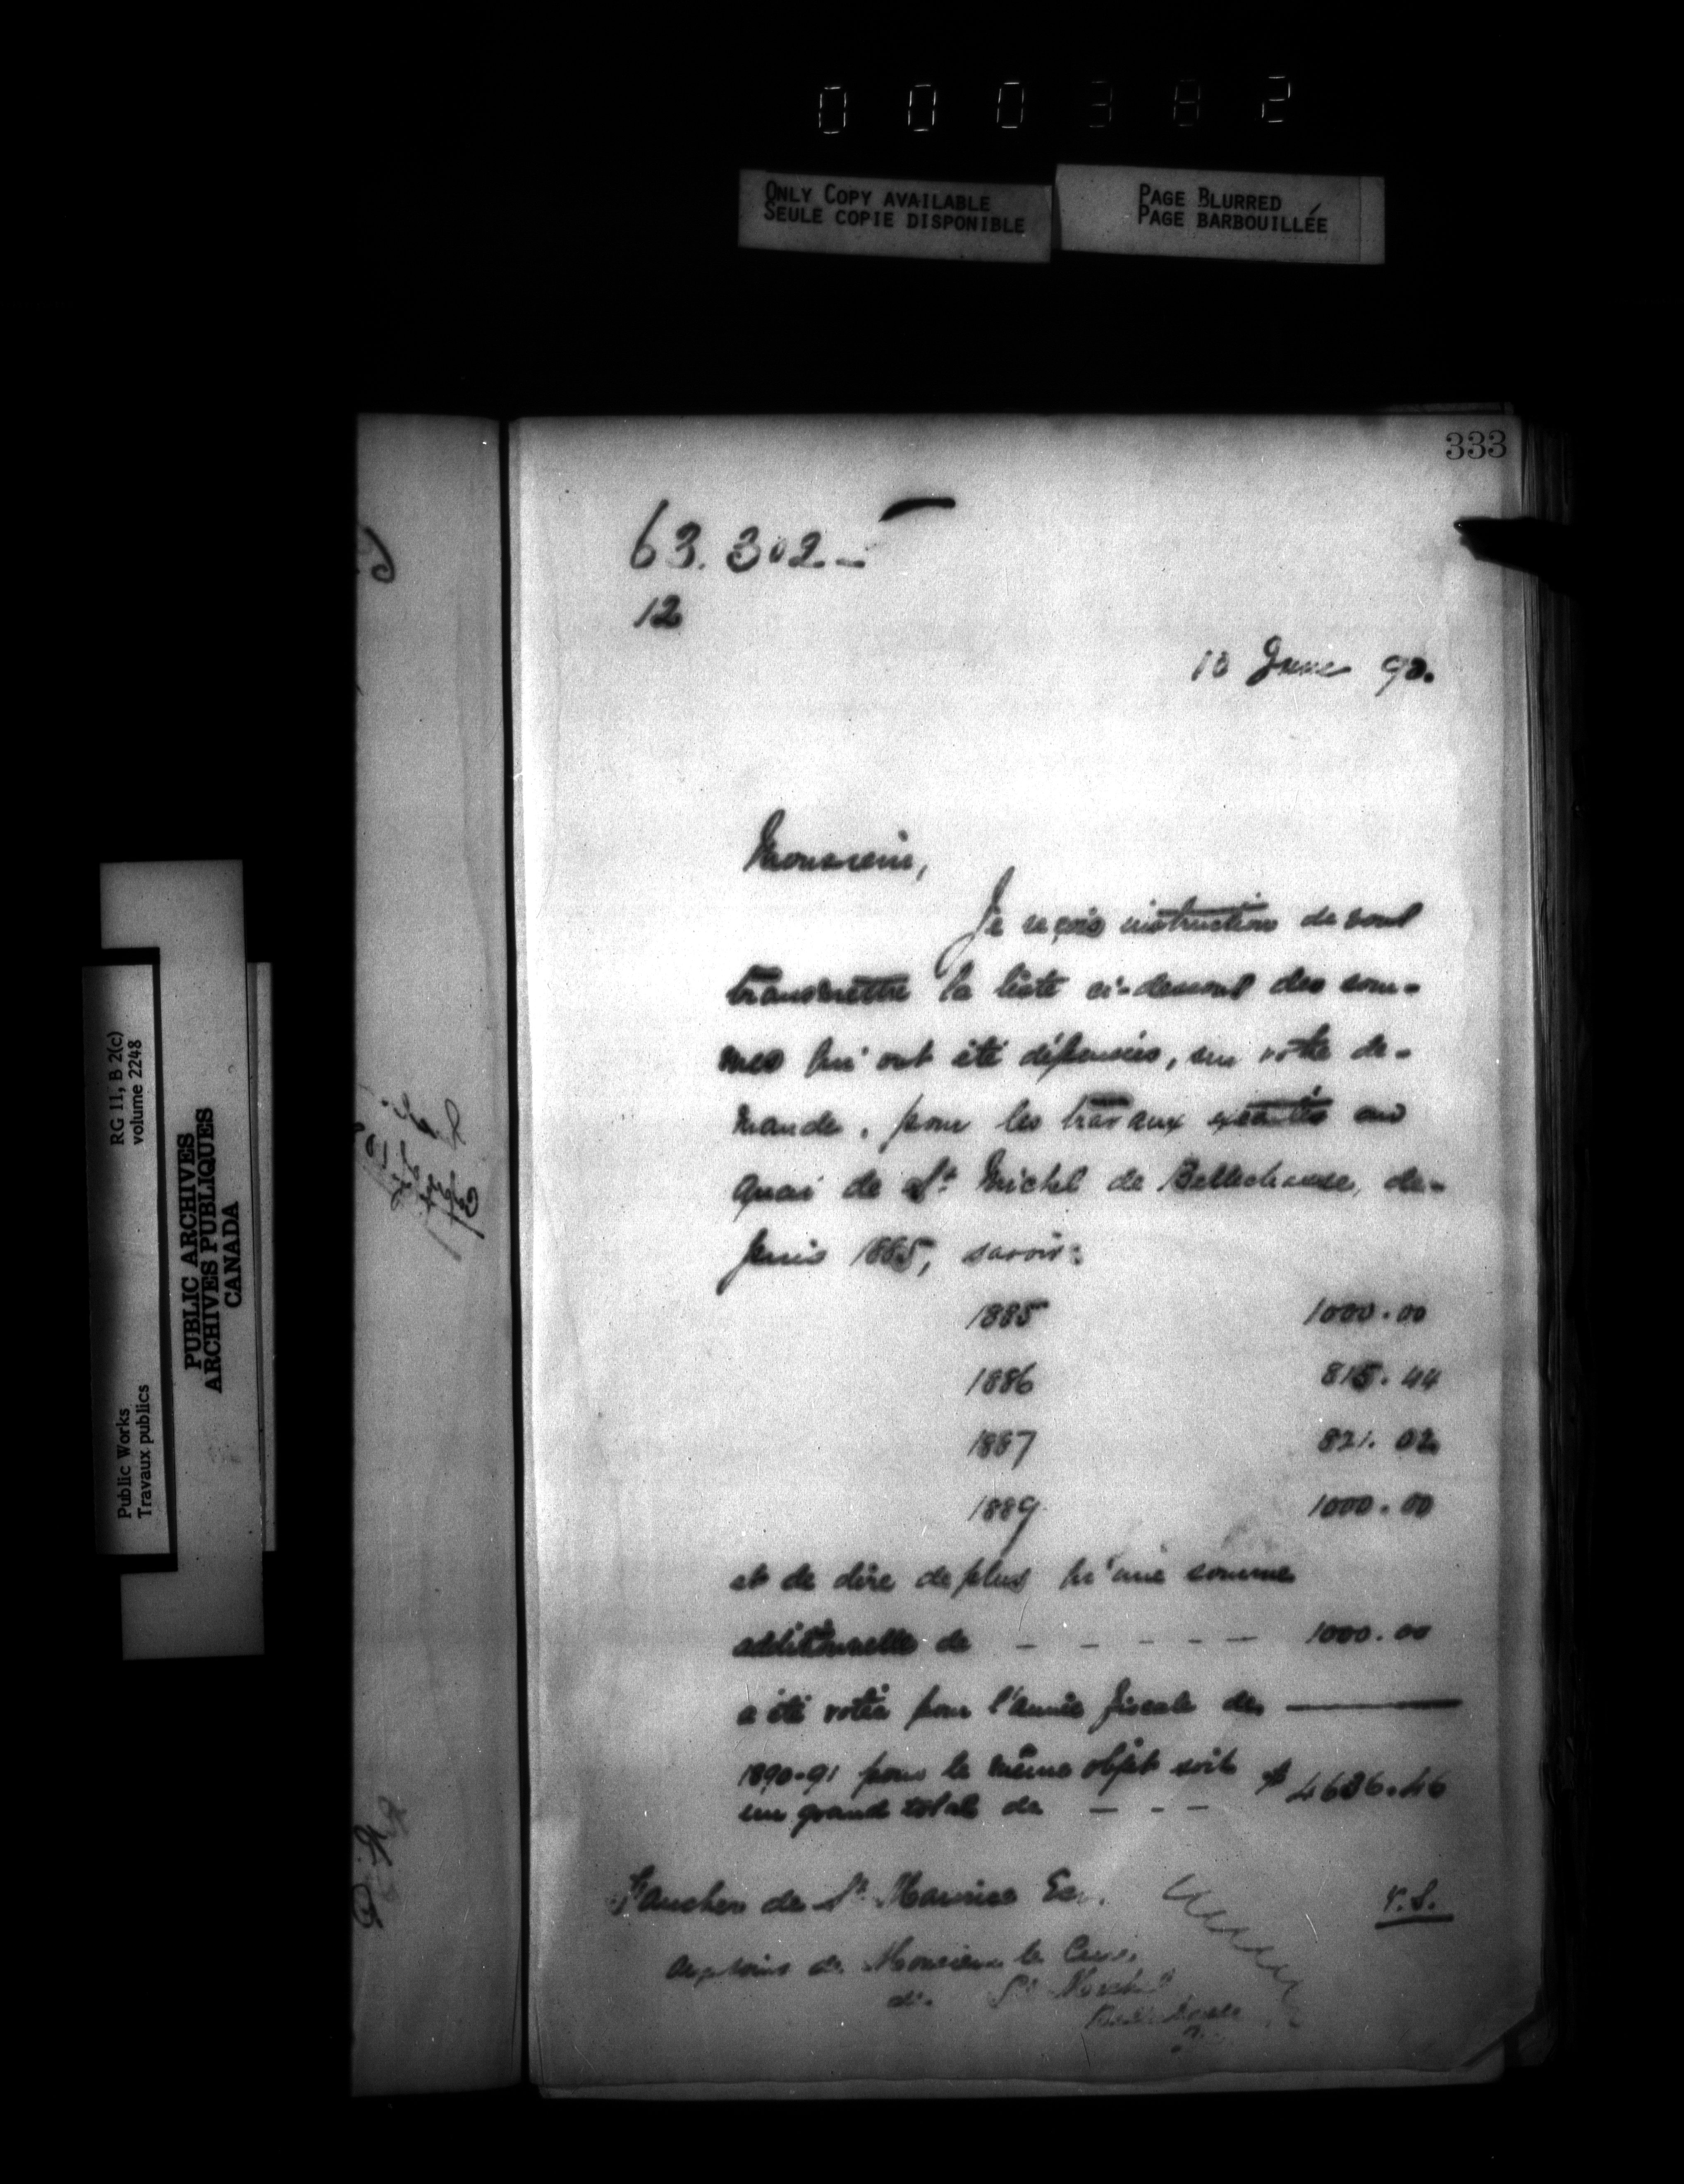 000382
ONLY COPY AVAILABLE
SEULE COPIE DISPONIBLE
PAGE BLURRED
PAGE BARBOUILLÉE
333
63.302-
12
10 June 90.
Monsieur,
Je reçois instruction de vous
transmettre la liste ci-dessous des som-
mes qui ont été dépensées, sur votre de-
mande, pour les travaux exécutés au
quai de St Michel de Bellechasse, de-
puis 1885, savoir:
1885 1000.00
1886 815.44
1887 821.02
1889 1000.00
et de dire de plus qu'une somme
additionnelle de - - - - - 1000.00
a été votée pour l'année fiscale de
1890-91 pour le même objet soit $4636.46
un grand total de - - -
Faucher de St Maurice Ecr.
V.S.
aux soins de Monsieur le Curé
de St Michel
Bellechasse
RG 11, B 2(c)
volume 2248
Public Works
Travaux publics
PUBLIC ARCHIVES
ARCHIVES PUBLIQUES
CANADA